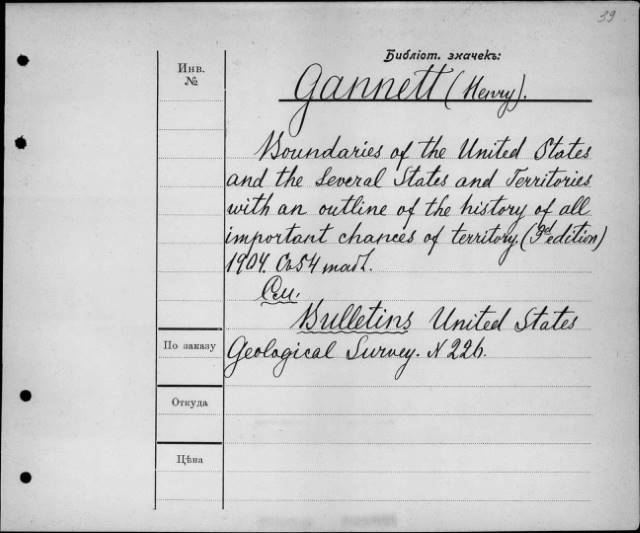 39
Библіот. значекъ:
Инв.
№
Gannett (Henry).
Boundaries of the United States
and the Several States and Territories
with an outline of the history of all
important chances of territory. (3d edition)
1904. Съ 54 табл.
См.
Bulletins United States
По заказу
Geological Survey. N 226.
Откуда
Цѣна